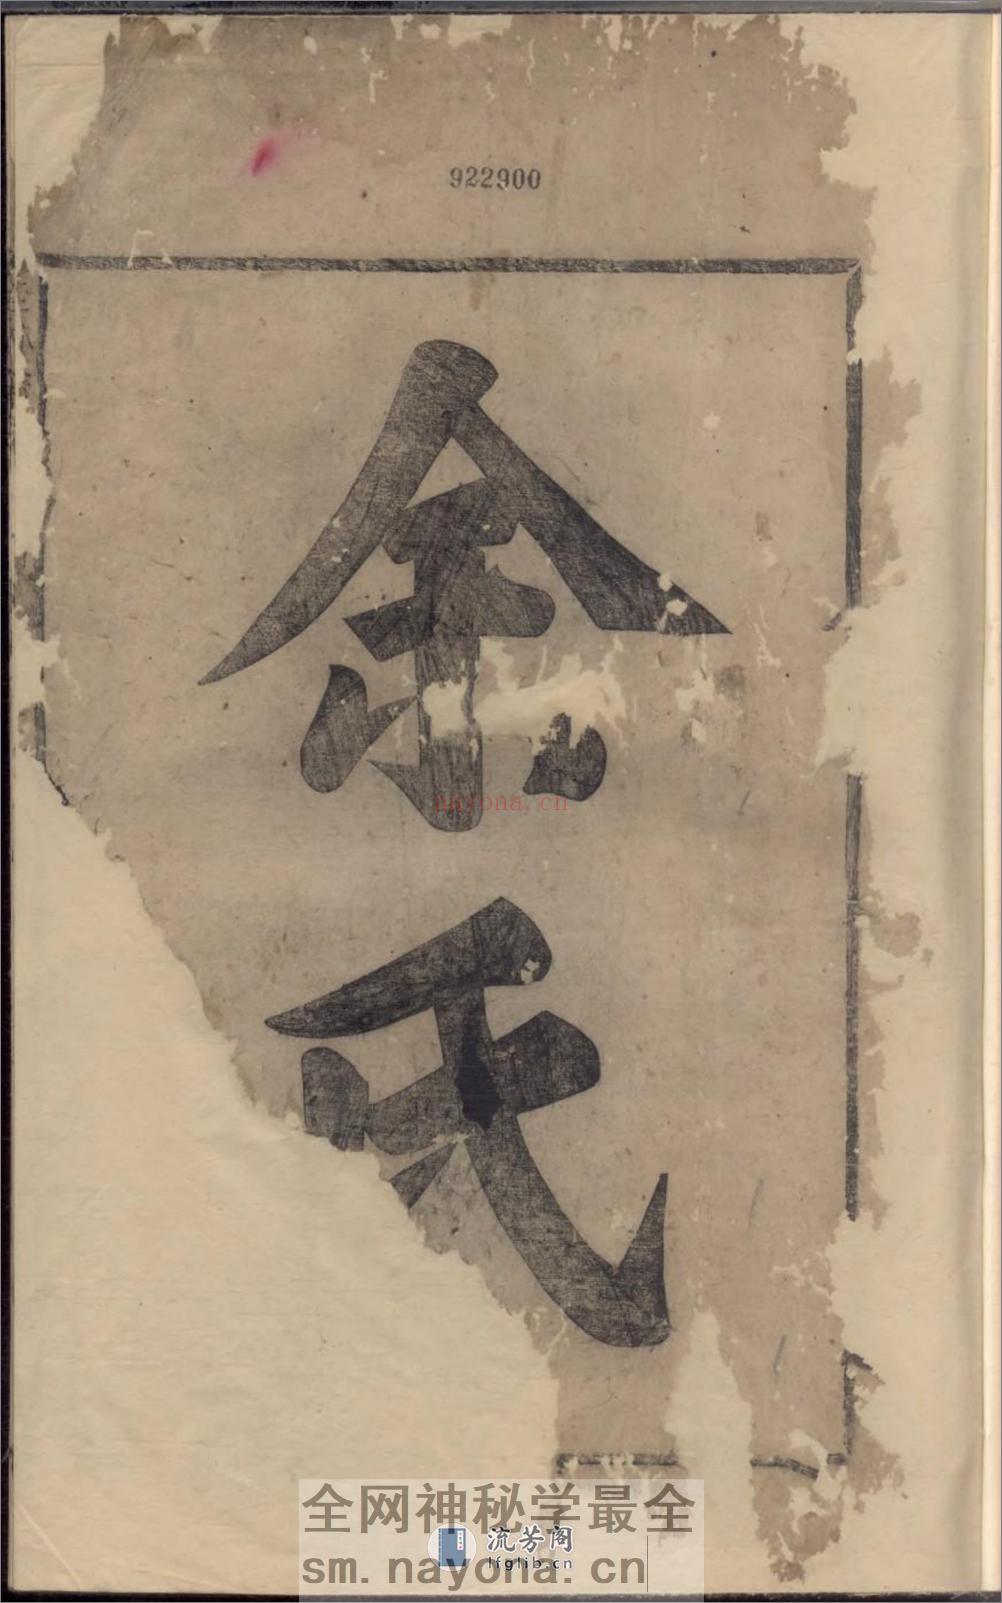 922900
余
氏
nayona.cn
全网神秘学最全
流芳阁
lfglib.cn
sm.nayona.cn